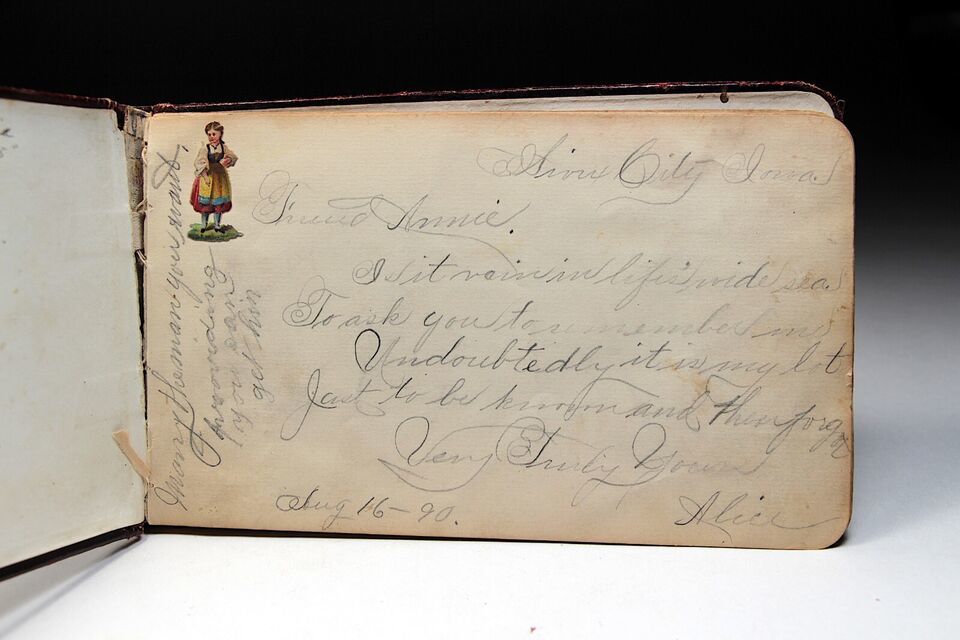 Sioux City Iowa
Friend Annie.
Is it vain in life's wide sea
To ask you to remember me
Undoubtedly it is my lot
Just to be known and then forgot
Very Truly Yours
Alice
Aug 16-90.
Marry the man you want,
providing
you can
get him